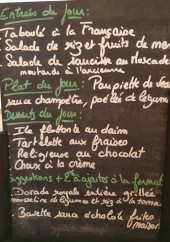 Entrées du jour:
Taboulé à la Française
Salade de riz et fruits de mer
Salade de saucisse au Muscadet
moutarde à l'ancienne
Plat du jour: Paupiette de veau
sauce champêtre, poêlée de légumes
Desserts du jour:
Ile flottante au daim
Tartelette aux fraises
Religieuse au chocolat
Choux à la crème
Suggestions + 2€ à ajouter à la formule
Dorade royale entière grillée
de légumes et riz à la tomate
Bavette sauce échalote frites
maison